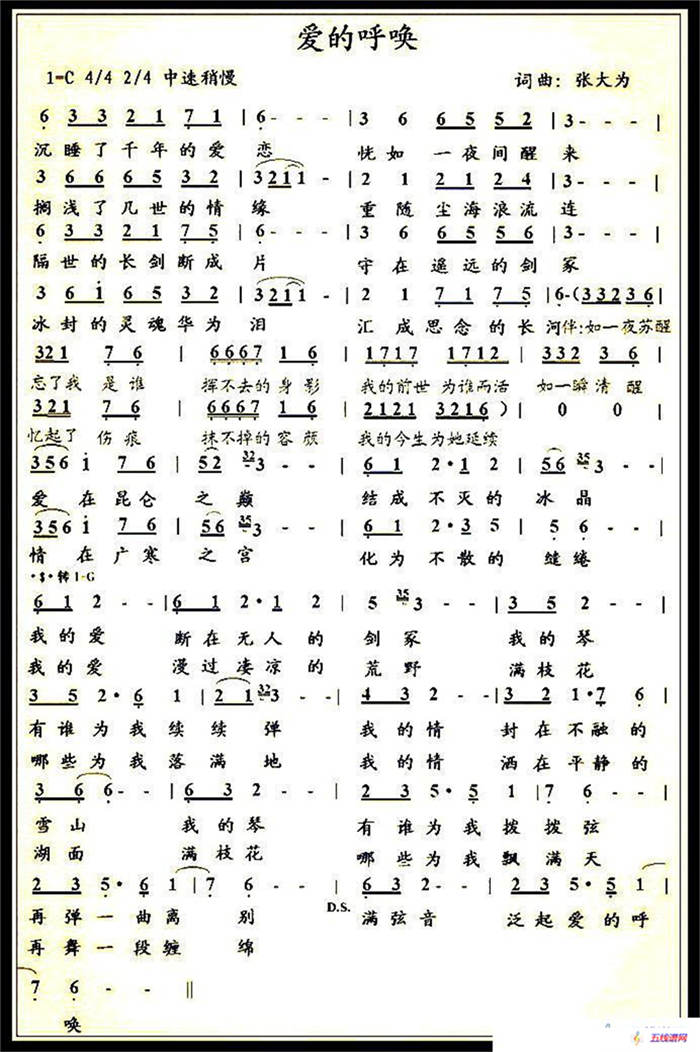 爱的呼唤
1=C 4/4 2/4 中速稍慢 词曲：张大为
6 3 3 2 1 7 1 | 6 - - - | 3 6 6 5 5 2 | 3 - - - |
沉睡了千年的爱恋 恍如一夜间醒来
3 6 6 6 5 3 2 | 3 2 1 1 - | 2 1 2 1 2 4 | 3 - - - |
搁浅了几世的情缘 重随尘海浪流连
6 3 3 2 1 7 5 | 6 - - - | 3 6 6 5 5 6 | 3 - - - |
隔世的长剑断成片 守在遥远的剑冢
3 6 1 6 5 3 2 | 3 2 1 1 - | 2 1 7 1 7 5 | 6 - ( 3 3 2 3 6 |
冰封的灵魂华为泪 汇成思念的长河 伴:如一夜苏醒
3 2 1 7 6 | 6 6 6 7 1 6 | 1 7 1 7 1 7 1 2 | 3 3 2 3 6 |
忘了我是谁 挥不去的身影 我的前世为谁而活 如一瞬清醒
3 2 1 7 6 | 6 6 6 7 1 6 | 2 1 2 1 3 2 1 6 ) | 0 0 |
忆起了伤痕 抹不掉的容颜 我的今生为她延续
3 5 6 i 7 6 | 5 2 32 3 - | 6 1 2 · 1 2 | 5 6 35 3 - |
爱在昆仑之巅 结成不灭的冰晶
3 5 6 i 7 6 | 5 6 35 3 - | 6 1 2 · 3 5 | 5 6 - - |
情在广寒之宫 化为不散的缱绻
·$·转1-G
6 1 2 - - | 6 1 2 · 1 2 | 5 35 3 - - | 3 5 2 - - |
我的爱 断在无人的剑冢 我的琴
我的爱 漫过凄凉的荒野 满枝花
3 5 2 · 6 1 | 2 1 32 3 - - | 4 3 2 - - | 3 2 1 · 7 6 |
有谁为我续续弹 我的情 封在不融的
哪些为我落满地 我的情 洒在平静的
3 6 6 - - | 6 3 2 - - | 2 3 5 · 5 1 | 7 6 - - |
雪山 我的琴 有谁为我拨拨弦
湖面 满枝花 哪些为我飘满天
2 3 5 · 6 1 | 7 6 - - | 6 3 2 - - | 2 3 5 · 5 1 |
D.S.
再弹一曲离别 满弦音 泛起爱的呼
再舞一段缠绵
7 6 - - ||
唤
五线谱网